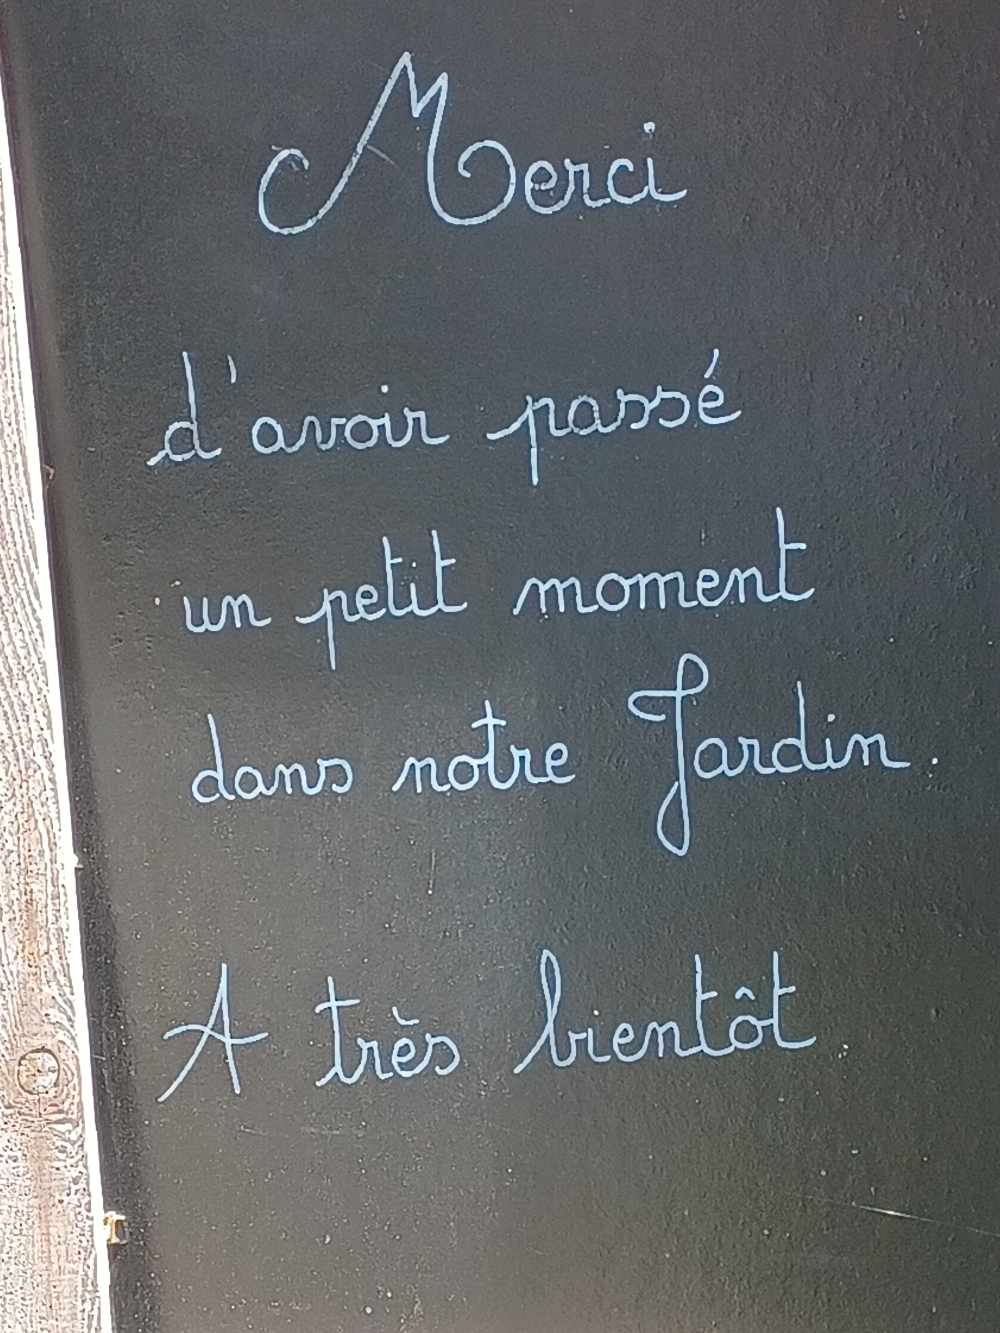 Merci
d'avoir passé
un petit moment
dans notre Jardin.
A très bientôt